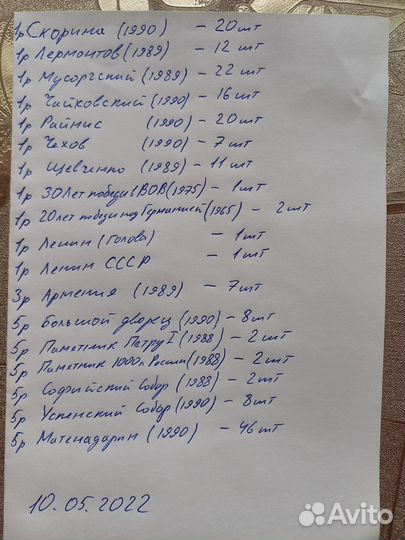 1р Скорина (1990) - 20 шт
1р Лермонтов (1989) - 12 шт
1р Мусоргский (1989) - 22 шт
1р Чайковский (1990) - 16 шт
1р Райнис (1990) - 20 шт
1р Чехов (1990) - 7 шт
1р Шевченко (1989) - 11 шт
1р 30 лет победы в ВОВ (1975) - 1 шт
1р 20 лет победы над Германией (1965) - 2 шт
1р Ленин (Голова) - 1 шт
1р Ленин СССР - 1 шт
3р Армения (1989) - 7 шт
5р Большой дворец (1990) - 8 шт
5р Памятник Петру I (1988) - 2 шт
5р Памятник 1000л России (1988) - 2 шт
5р Софийский Собор (1988) - 2 шт
5р Успенский Собор (1990) - 8 шт
5р Матенадарин (1990) - 46 шт
10.05.2022
Avito